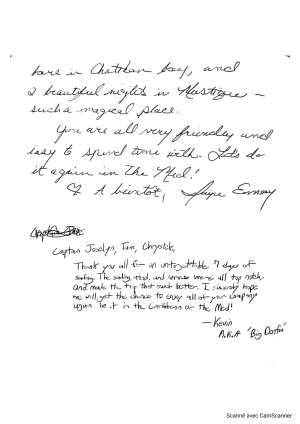 bars in Chatham bay, and
2 beautiful nights in Mustique -
such a magical place.
You are all very friendly and
easy to spend time with. Let's do
it again in the Med!
A bientôt,
Captain Jocelyn, Tim, Chrystele,
Thank you all for an unforgettable 7 days of
sailing. The sailing, food, and service were all top notch
and made the trip that much better. I sincerely hope
we will get the chance to enjoy all of your company
again be it in the Caribbean or the Med!
- Kevin
A.K.A "Big Dottie"
Scanné avec CamScanner